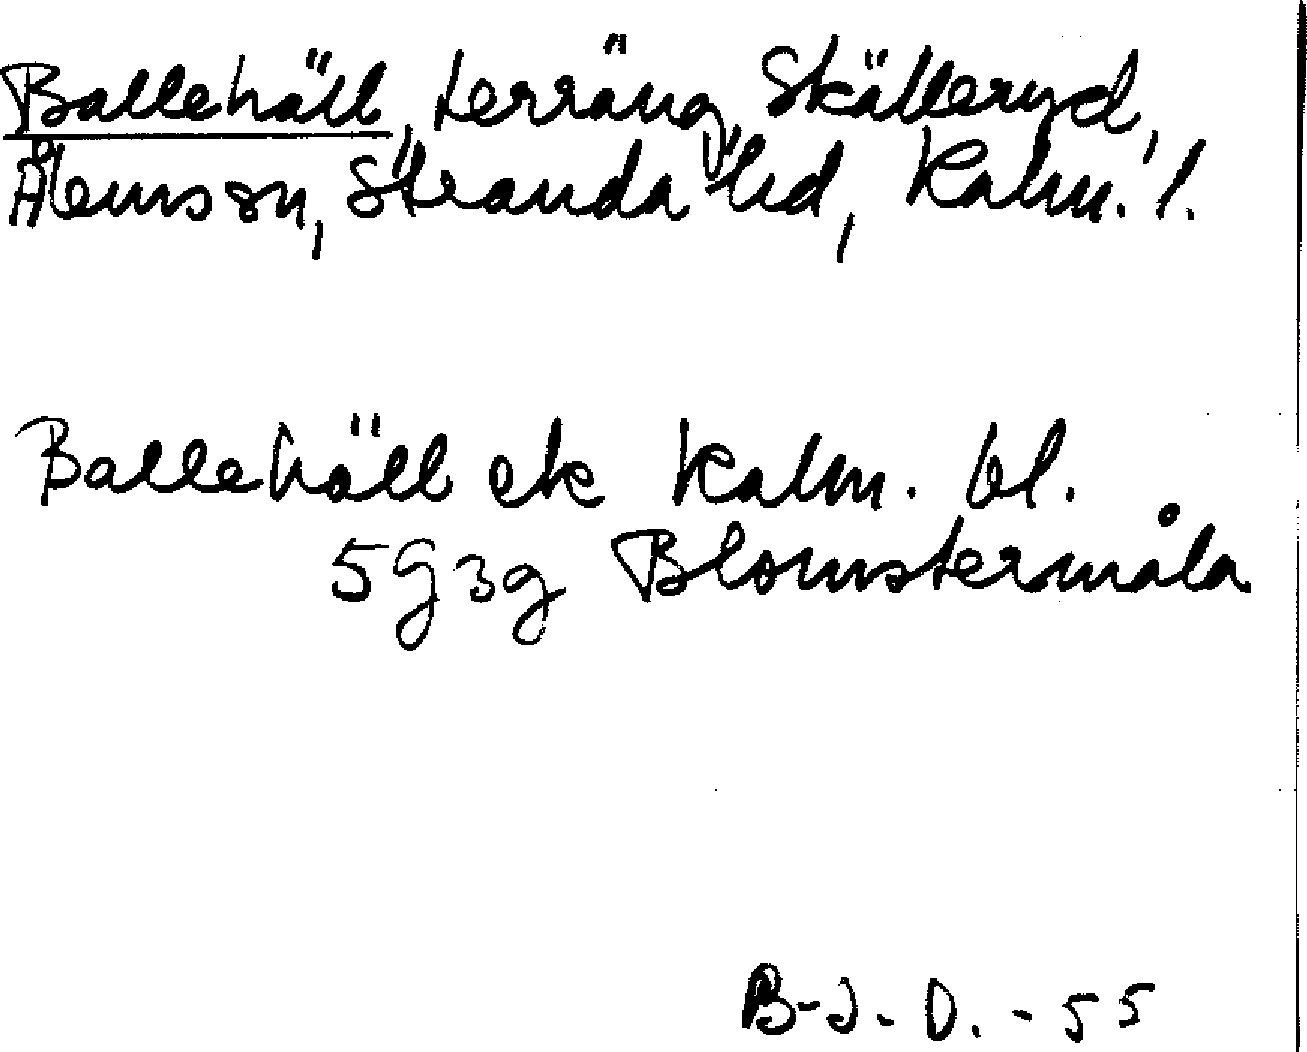 Ballehäll, terräng, Skälleryd,
Ålems sn, Stranda hd, Kalm. l.
Ballehäll ek Kalm. bl.
5G3g Blomstermåla
B-J. O. - 55